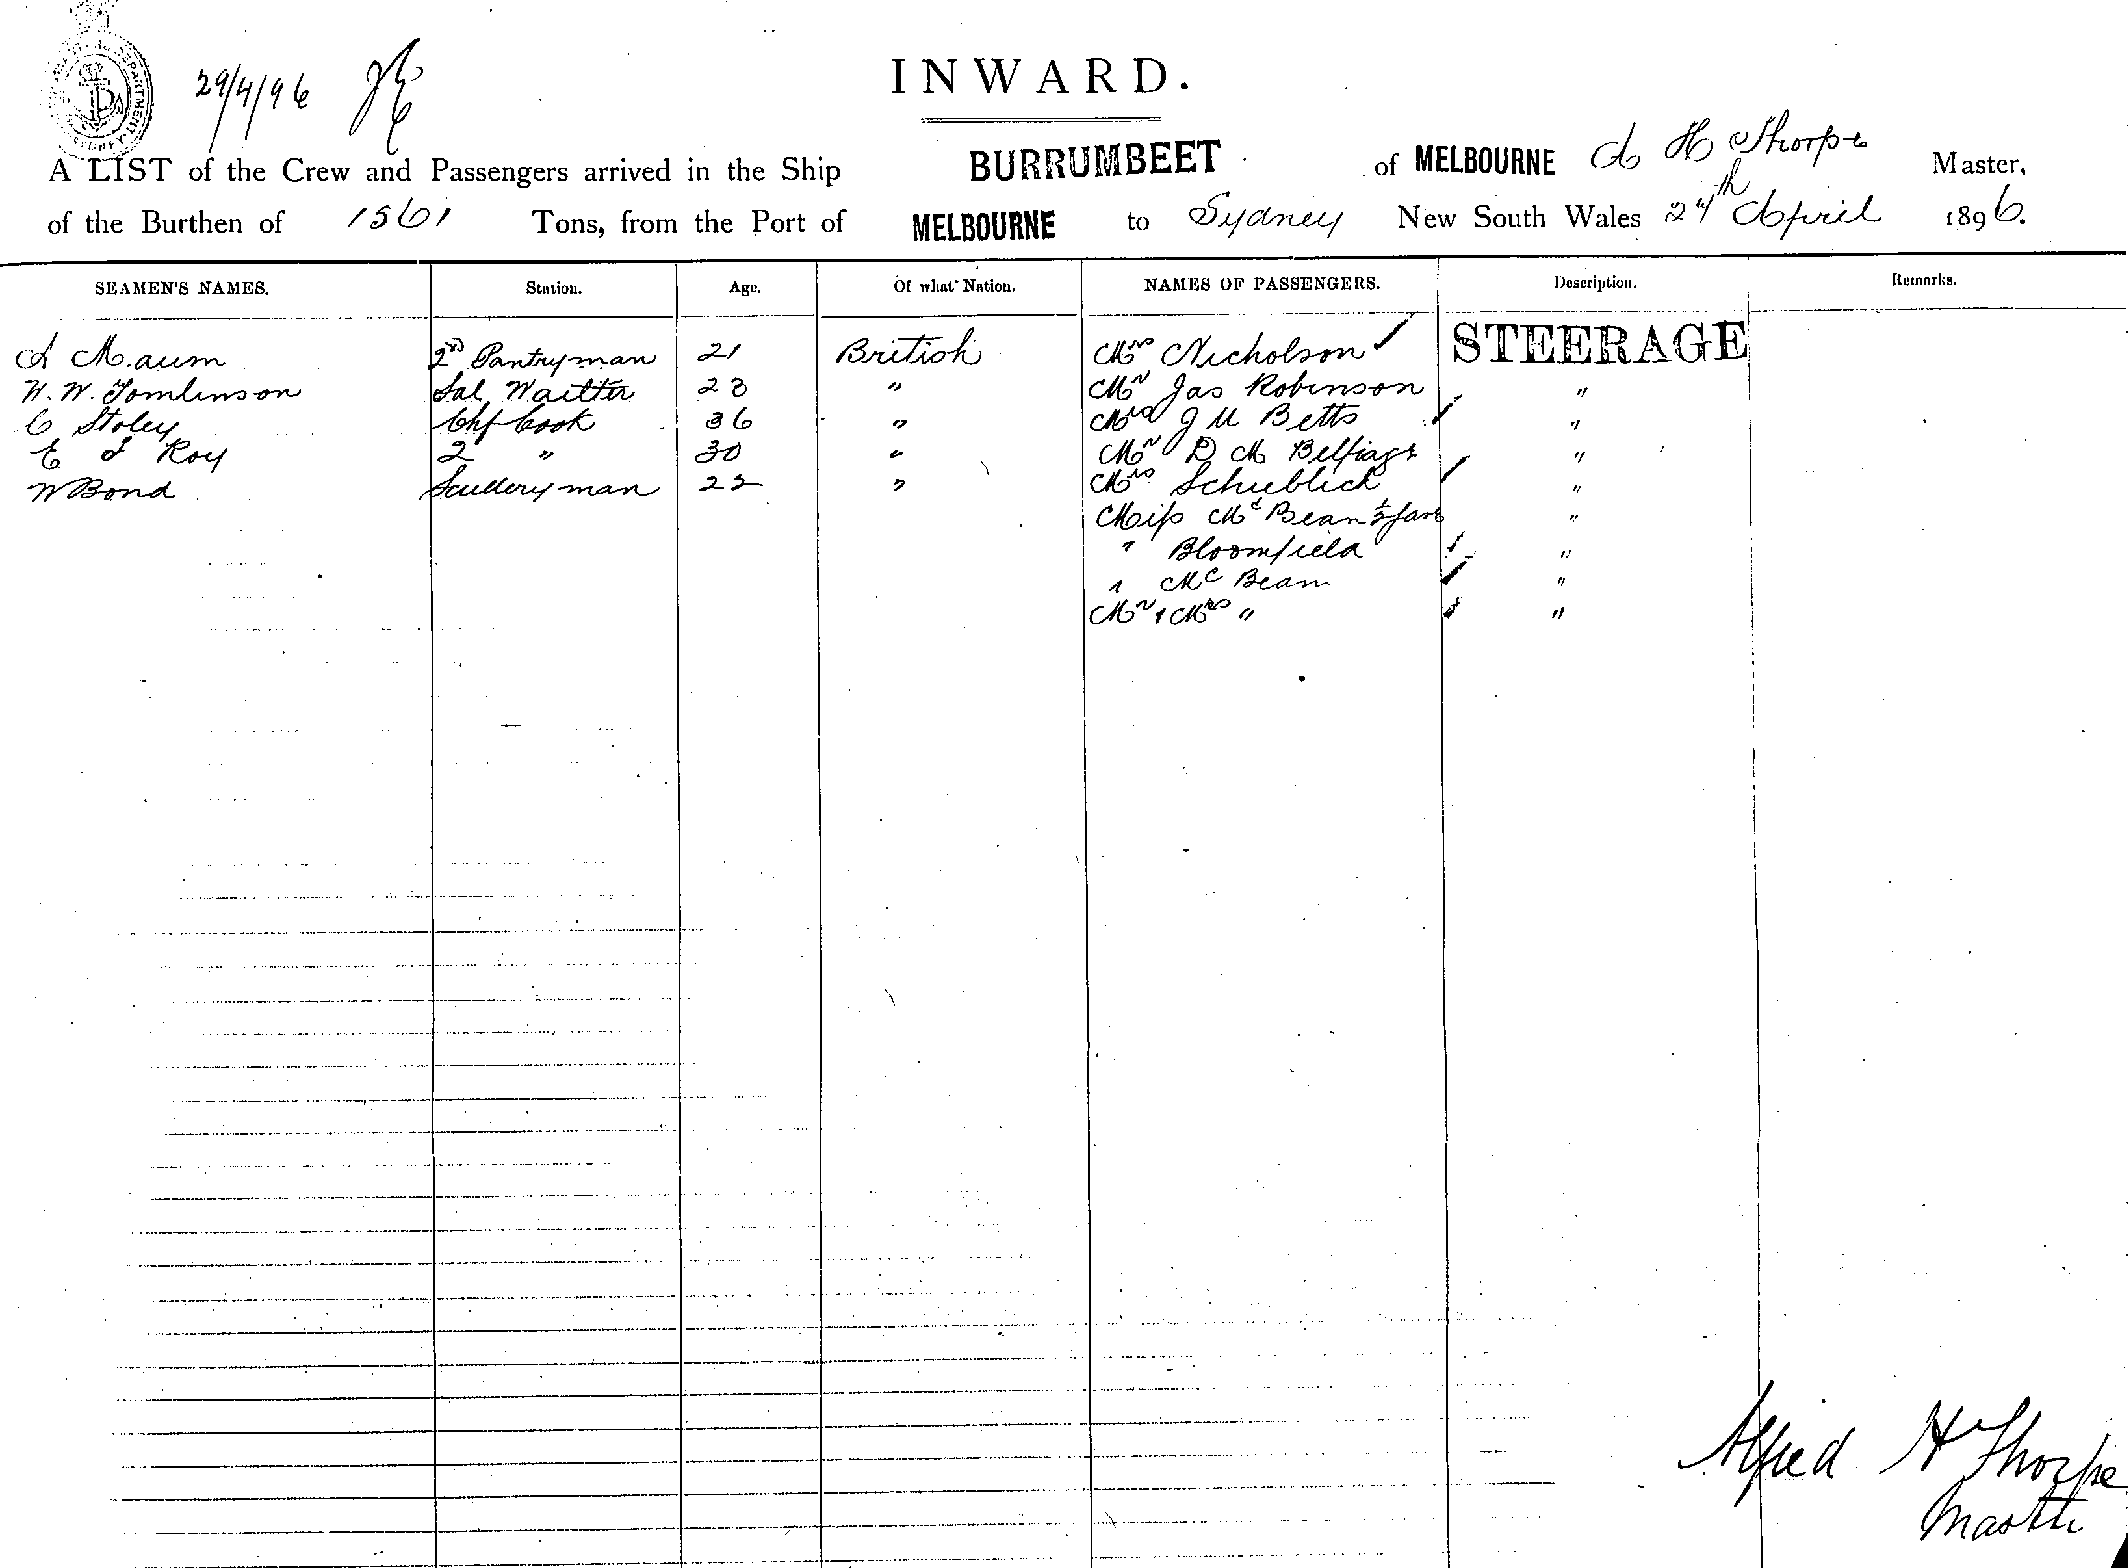 29/4/96
INWARD.
A LIST of the Crew and Passengers arrived in the Ship BURRUMBEET of MELBOURNE A H Thorpe Master,
of the Burthen of 1561 Tons, from the Port of MELBOURNE to Sydney New South Wales 24th April 1896.
SEAMEN'S NAMES. Station. Age. Of what Nation. NAMES OF PASSENGERS. Description. Remarks.
A Maum 2nd Pantryman 21 British Mrs Nicholson STEERAGE
W. W. Tomlinson Sal Waitter 23 " Mr Jas Robinson "
C Stoley Chf Cook 36 " Mrs J M Betts "
E J Roy 2 " 30 " Mr D M "
W Bond Scullery man 22 " Mrs Schieblich "
Miss Mc Bean ½ fare "
" Bloomfield "
" Mc Bean "
Mr & Mrs " "
Alfred H Thorpe
Master